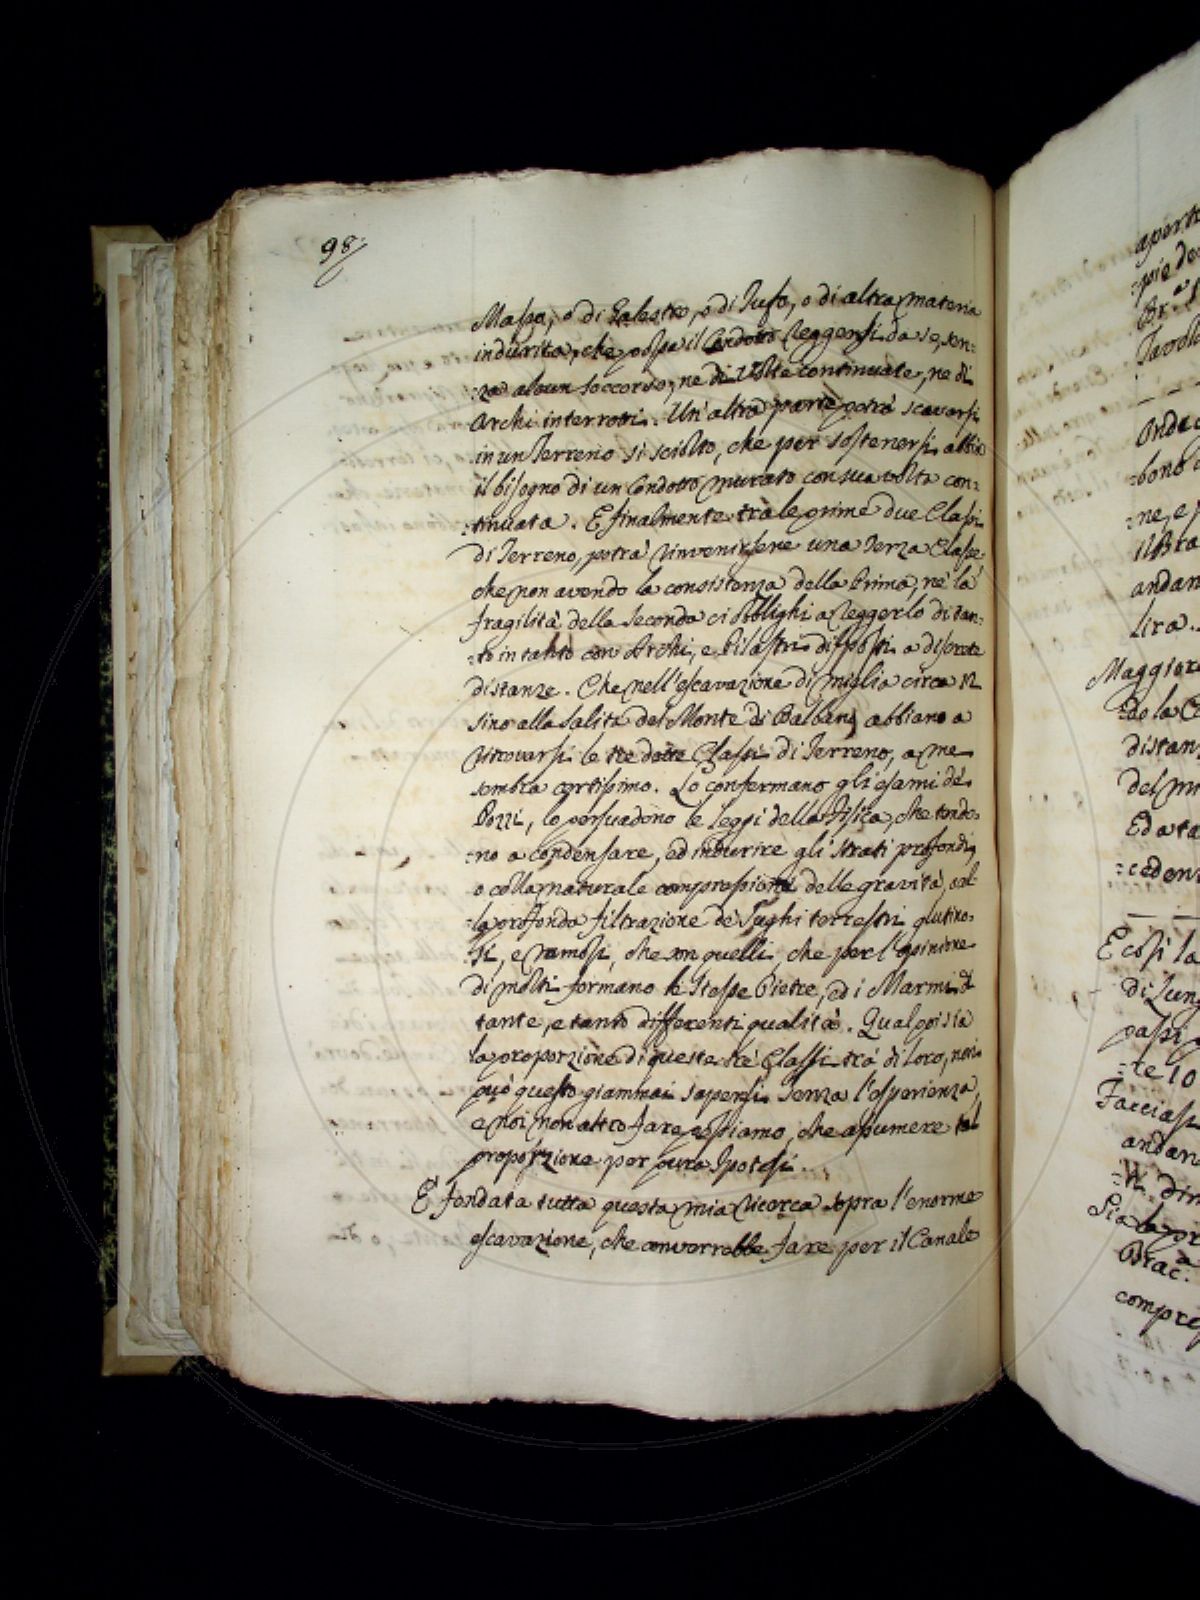 98.
Massa, o di Galestro, o di Tufo, o di altra materia
indurita, che possa il Condotto reggersi da se, sen=
=za alcun soccorso, ne di Volte continuate, ne di
Archi interrotti. Un'altra parte potrà scavarsi
in un Terreno sì sciolto, che per sostenersi abbia
il bisogno di un Condotto murato con sua volta con=
=tinuata. E finalmente trà le prime due Classi
di Terreno, potrà rinvenirsene una Terza Classe
che non avendo la consistenza della Prima, nè la
fragilità della Seconda ci obblighi a reggerlo di tan=
=to in tanto con Archi, e Pilastri disposti a discrete
distanze. Che nell'escavazione di miglia circa 12
sino alla Salita del Monte di Balbano abbiano a
ritrovarsi le tre dette Classi di Terreno, a me
sembra certissimo. Lo confermano gli esami de'
Pozzi, lo persuadono le Leggi della Fisica, che tendo=
=no a condensare, ed indurire gli Strati profondi,
o colla naturale compressione delle gravità, col=
=la profonda filtrazione de' Sughi terrestri glutino=
=si, e ramosi, che son quelli, che per l'opinione
di molti formano le Stesse Pietre, ed i Marmi di
tante, e tanto differenti qualità. Qual poi sia
la proporzione di queste trè Classi trà di loro, non
può questo giammai sapersi senza l'esperienza,
e noi non altro fare possiamo, che assumere tal
proporzione per pura Ipotesi.
E' fondata tutta questa mia ricerca sopra l'enorme
escavazione, che converrebbe fare per il Canale
andan
lira.
Maggior
=do la
distan
Ed a ta
=ceden
E così la
di Lung
passi
=te 10
Facciasi
andan
Sia la por
Brac.a
compre